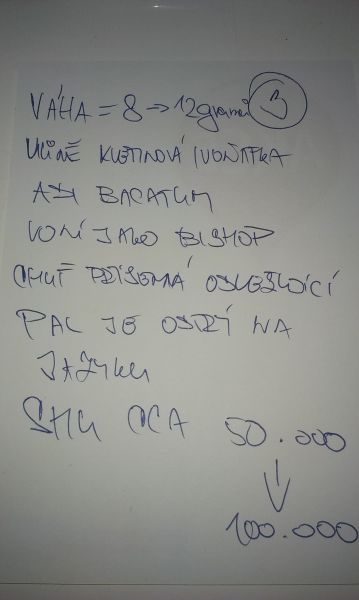 VÁHA = 8 → 12 gramů 3
VŮNĚ KVETINOVÁ
ASI BACATUM
VONÍ JAKO BISHOP
CHUŤ PŘÍJEMNÁ OSVEŽUJÍCÍ
PAL JE OSTRÝ NA
JAZYKU
SHU CCA 50.000
↓
100.000